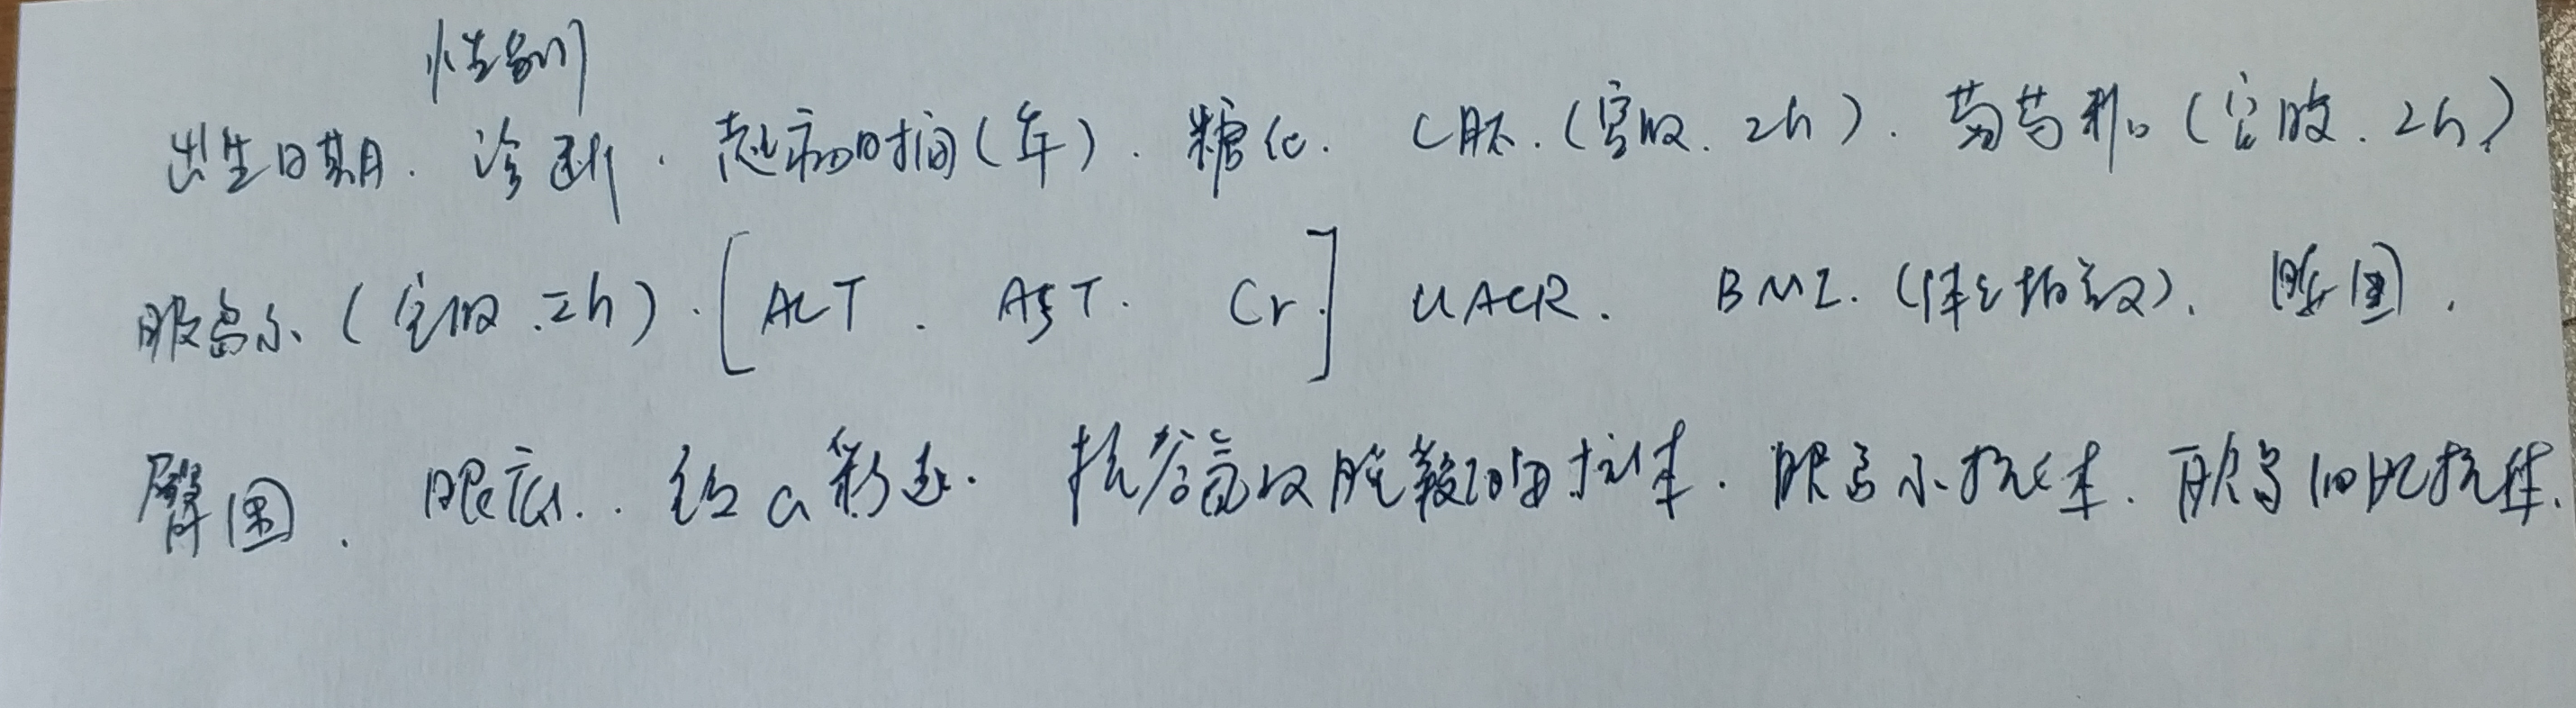 性别
出生日期. 诊断. 起病时间(年). 糖化. C肽.(空腹. 2h). 葡萄糖(空腹. 2h)
胰岛素(空腹.2h).[ALT. AST. Cr.] UACR. BMI.(体重指数). 腰围.
臀围. 眼底.. 彩超. 抗谷氨酸脱羧酶抗体. 胰岛素抗体. 胰岛细胞抗体.